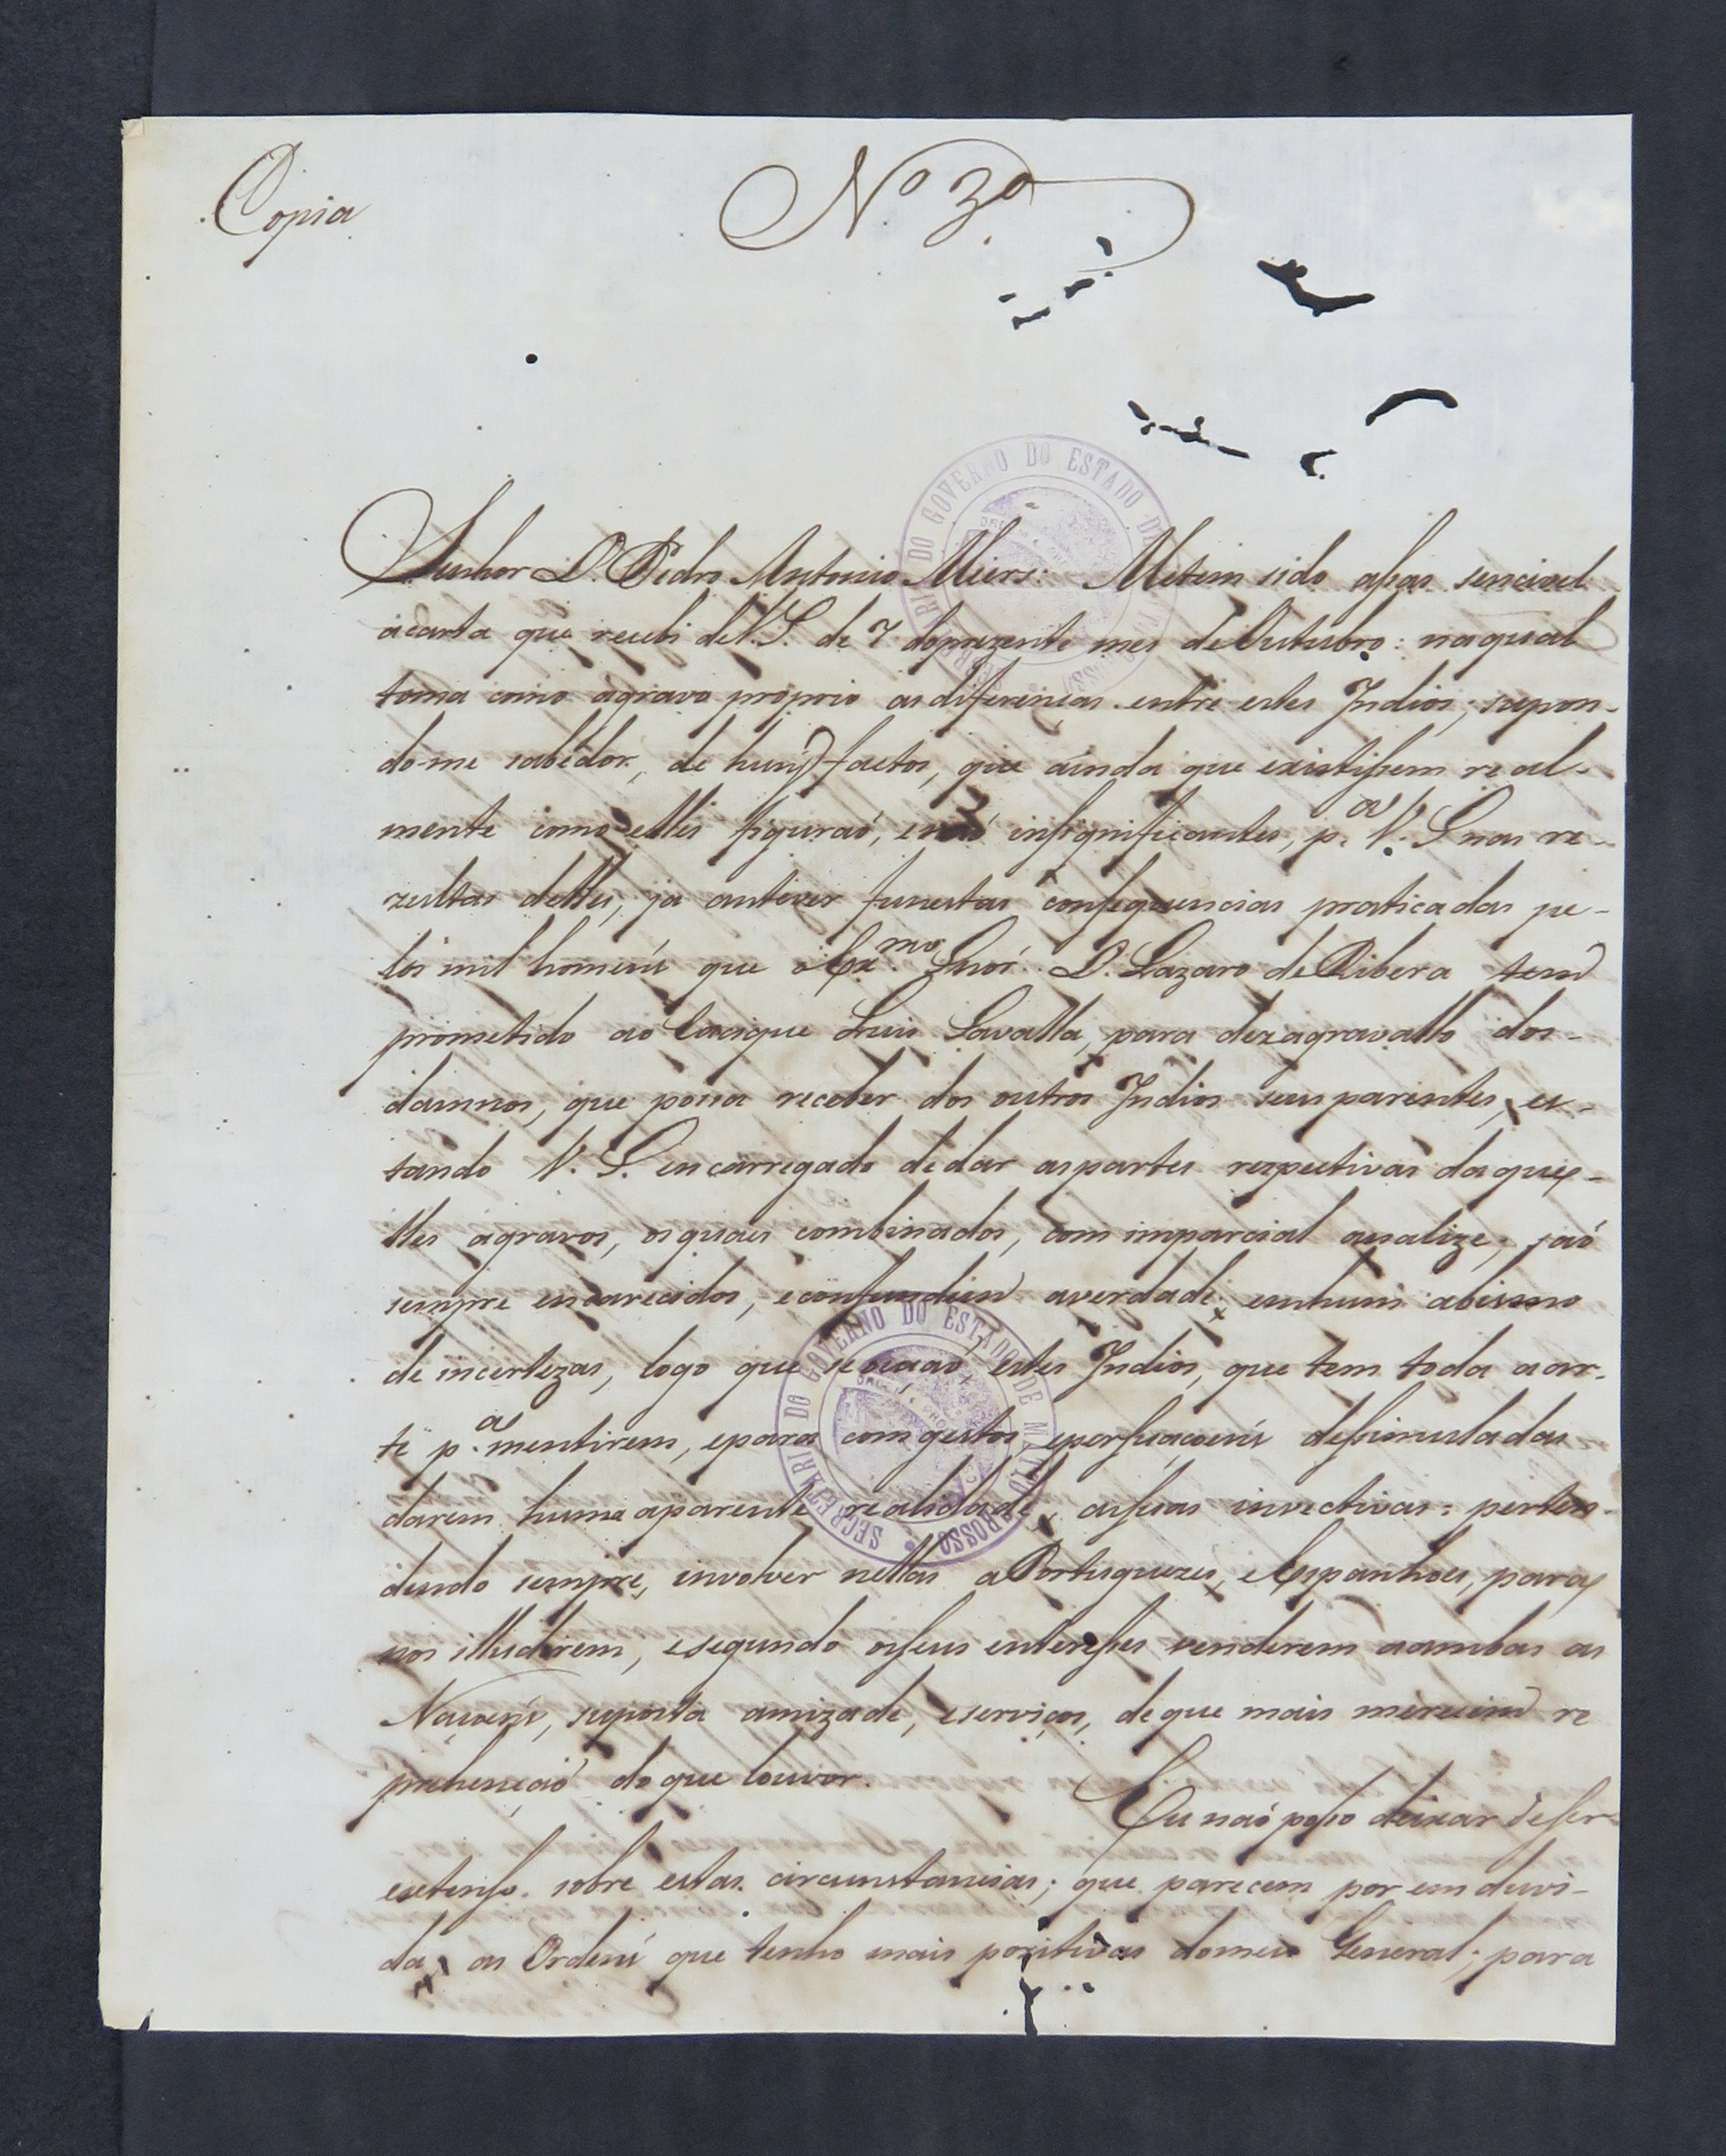 Copia
Nº 3º
Senhor D. Pedro Antonio Miers: Metem sido assas sencivel
acarta que recebi de V. S. de 7 do prezente mes de Outubro: naqual
toma como agravo proprio as diferenças entre estes Indios; supon-
do-me sabedor, de huns factos, que ainda que existissem real-
mente como elles figuraó, eraó insignificantes, p.ª V. S nas re-
zultas delles, ja antiver funestas consequencias praticadas pe-
los mil homens que o Ex.mo Snór. D. Lazaro de Ribera tem
prometido ao Cacique Luis Zavalla, para dezagravallo dos-
damnos, que possa receber dos outros Indios seus parentes, es-
tando V. S. encarregado de dar as partes respectivas daquel-
lles agravos, os quaes combinados, com imparcial analize, saó
sempre encarecidos, e confundem a verdade, em hum abismo
de incertezas, logo que se estes Indios, que tem toda a ar-
te p.ª mentirem, e para com gestos, e persuaçoens dessimuladas
darem huma aparente realidade, assuas invectivas: perten-
dendo sempre, involver nellas a Portuguezes, e Espanhoes, para
nos illudirem, e segundo osseus interesses venderem aambas as
Naçoens, suposta amizade, e serviços, de que mais merecem re
prehençaó do que louvor.
Eu naó posso deixar de ser
extenso sobre estas circunstancias; que parecem por em duvi-
da, as Ordens que tenho mais pozitivas domeu General; para
SECRETARI DO GOVERNO DO ESTADO DE MATTO GROSSO
SECRETARI DO GOVERNO DO ESTADO DE MATTO GROSSO